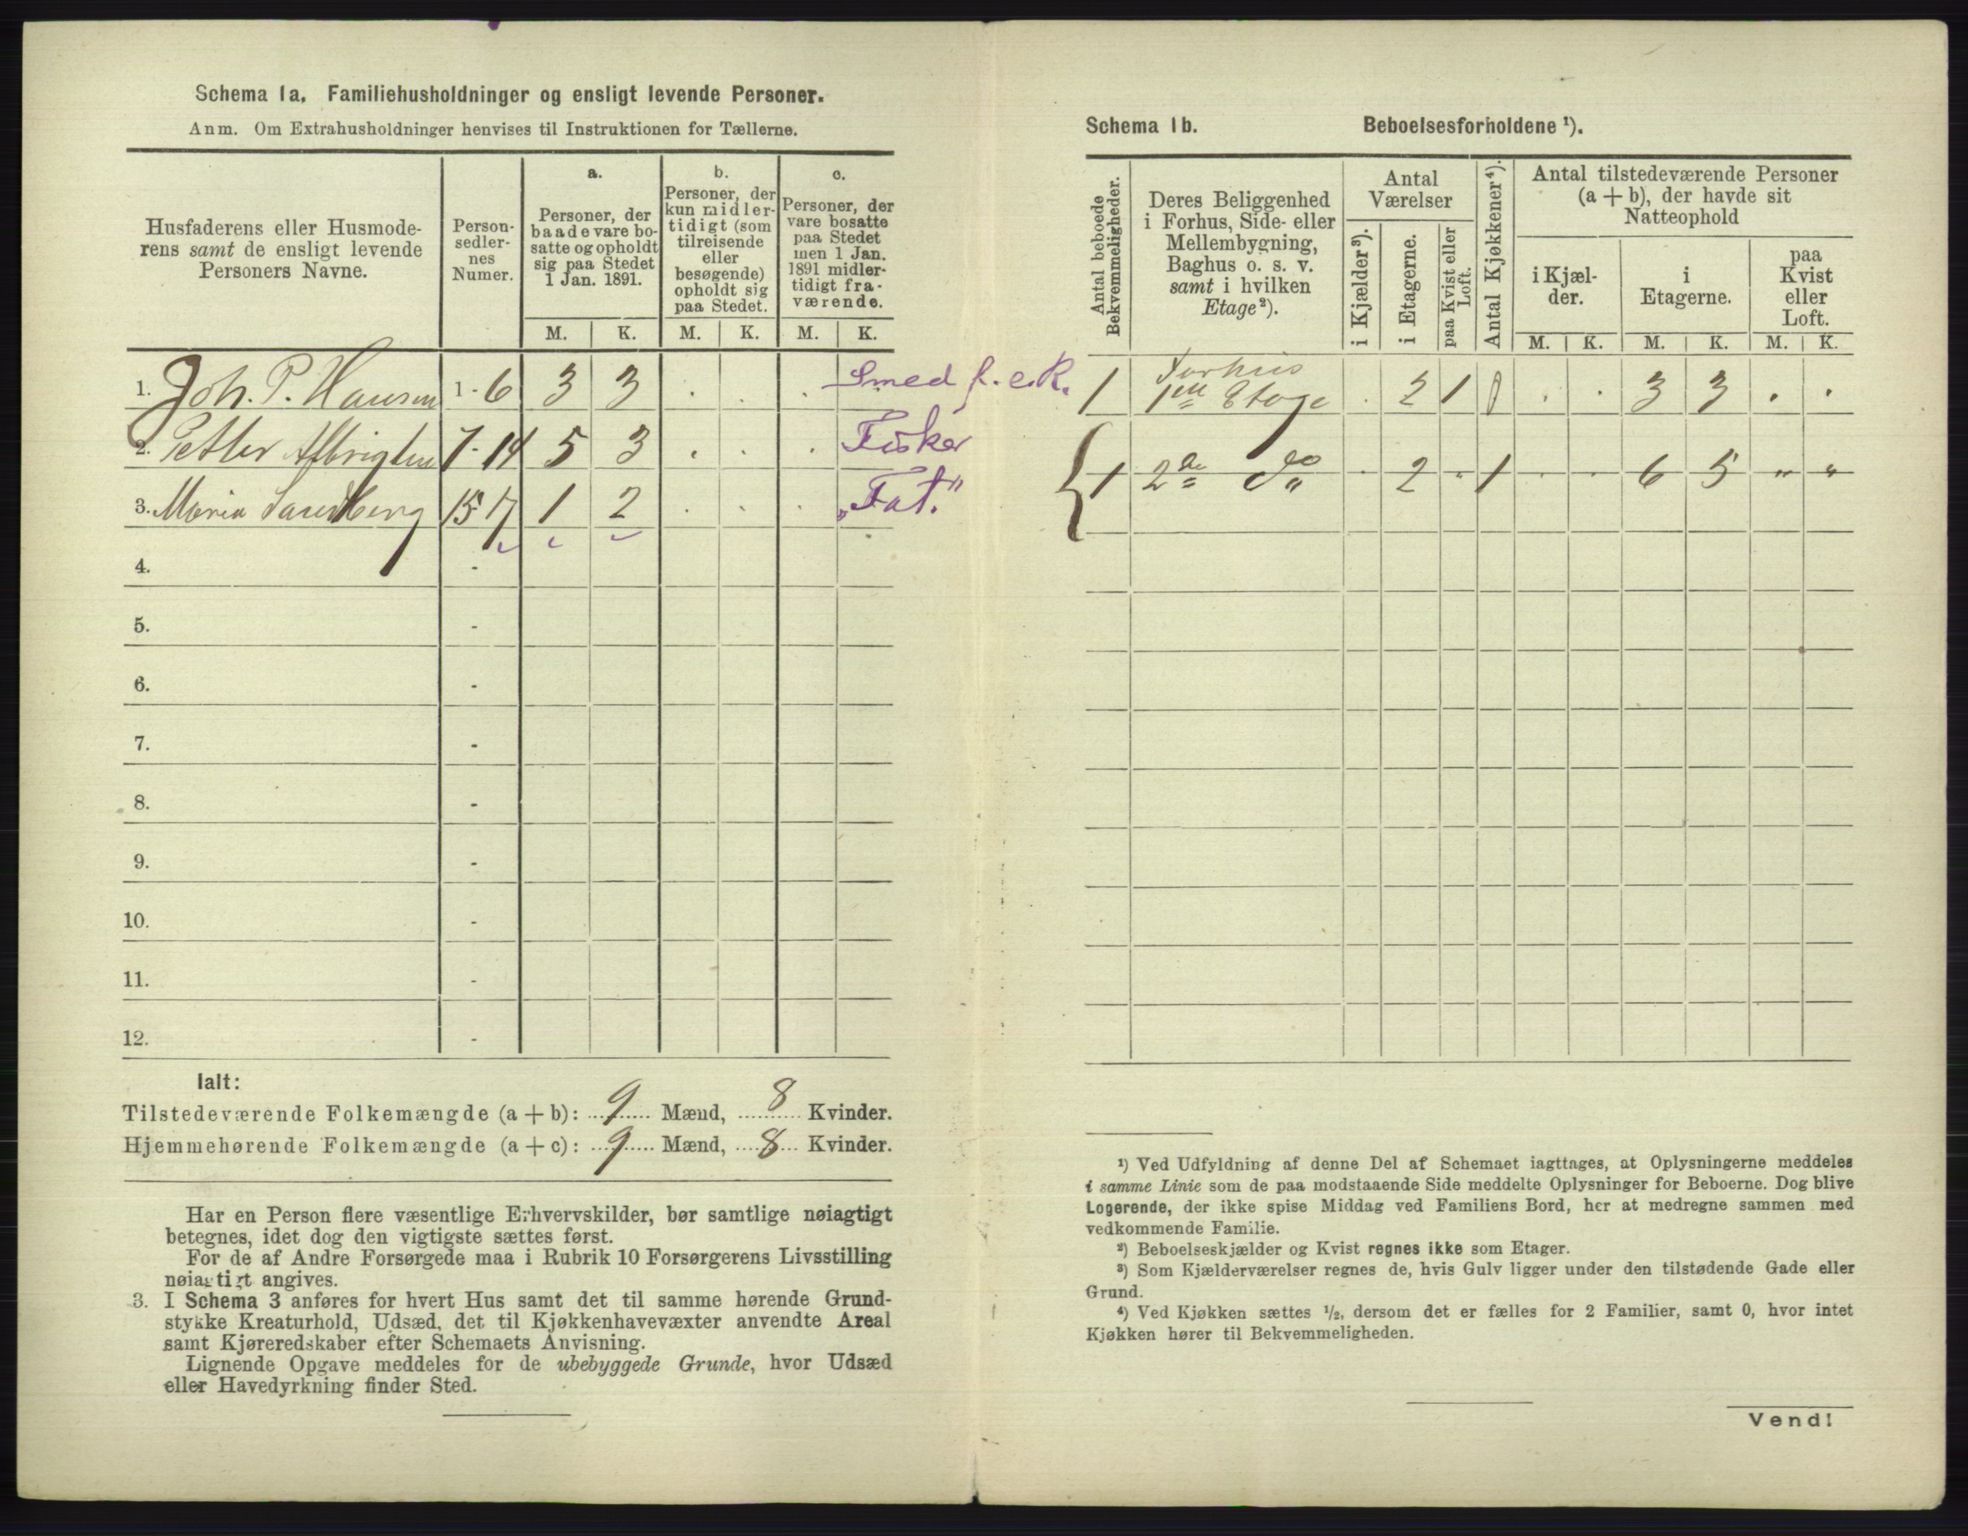 Schema 1a. Familiehusholdninger og ensligt levende Personer.
Anm. Om Extrahusholdninger henvises til Instruktionen for Tællerne.
Husfaderens eller Husmode-
rens samt de ensligt levende
Personers Navne.
Person-
sedler-
nes
Numer.
a.
Personer, der
baade vare bo-
satte og opholdt
sig paa Stedet
1 Jan. 1891.
b.
Personer, der
kun midler-
tidigt (som
tilreisende
eller
besøgende)
opholdt sig
paa Stedet.
c.
Personer, der
vare bosatte
paa Stedet
men 1 Jan.
1891 midler-
tidigt fra-
værende.
M. K. M. K. M. K.
1. Joh. P. Hansen 1-6 3 3 . . . Smed f. e. R.
2. Petter Albrigtsen 7-14 5 3 . . . Fisker
3. Maria Sandberg 15-17 1 2 . . . "Fat."
4. -
5. -
6. -
7. -
8. -
9. -
10. -
11. -
12. -
Ialt:
Tilstedeværende Folkemængde (a + b): 9 Mænd, 8 Kvinder.
Hjemmehørende Folkemængde (a + c): 9 Mænd, 8 Kvinder.
Har en Person flere væsentlige Erhvervskilder, bør samtlige nøiagtigt
betegnes, idet dog den vigtigste sættes først.
For de af Andre Forsørgede maa i Rubrik 10 Forsørgerens Livsstilling
nøiagtigt angives.
3. I Schema 3 anføres for hvert Hus samt det til samme hørende Grund-
stykke Kreaturhold, Udsæd, det til Kjøkkenhavevæxter anvendte Areal
samt Kjøreredskaber efter Schemaets Anvisning.
Lignende Opgave meddeles for de ubebyggede Grunde, hvor Udsæd
eller Havedyrkning finder Sted.
Schema 1b. Beboelsesforholdene ¹).
Antal beboede
Bekvemmeligheder.
Deres Beliggenhed
i Forhus, Side- eller
Mellembygning,
Baghus o. s. v.
samt i hvilken
Etage²).
Antal
Værelser
i Kjælder³).
i Etagerne.
paa Kvist eller
Loft.
Antal Kjøkkener⁴).
Antal tilstedeværende Personer
(a + b), der havde sit
Natteophold
i Kjæl-
der.
i
Etagerne.
paa
Kvist
eller
Loft.
M. K. M. K. M. K.
Forhus
1 1ste Etage . 2 1 1 . . 3 3 . .
1 2de do . 2 " 1 . . 6 5 " "
¹) Ved Udfyldning af denne Del af Schemaet iagttages, at Oplysningerne meddeles
i samme Linie som de paa modstaaende Side meddelte Oplysninger for Beboerne. Dog blive
Logerende, der ikke spise Middag ved Familiens Bord, her at medregne sammen med
vedkommende Familie.
²) Beboelseskjælder og Kvist regnes ikke som Etager.
³) Som Kjælderværelser regnes de, hvis Gulv ligger under den tilstødende Gade eller
Grund.
⁴) Ved Kjøkken sættes ½, dersom det er fælles for 2 Familier, samt 0, hvor intet
Kjøkken hører til Bekvemmeligheden.
Vend!